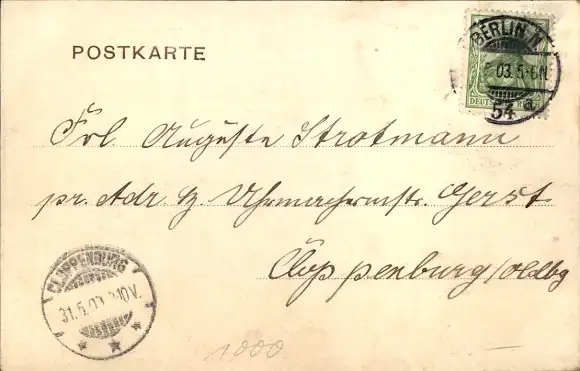 POSTKARTE
BERLIN N.
5.03.5-6N.
54 a
DEUTSCHES REICH
Frl. Auguste Strotmann
pr. Adr. H. Uhrmachermstr. Gerst
Cloppenburg/Oldbg
CLOPPENBURG
31.5.03. 10V.
1000